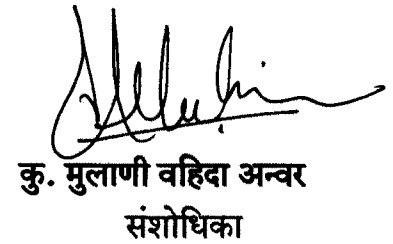 कु. मुलाणी वहिदा अन्वर
संशोधिका